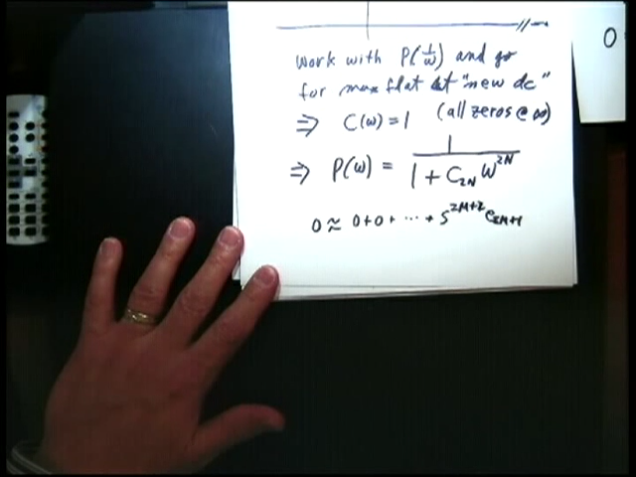 Work with P(1/ω) and go
for max flat at "new dc"
⇒ C(ω) = 1 (all zeros @ ∞)
⇒ P(ω) = 1 / (1 + C_{2N} ω^{2N})
0 ≈ 0+0+ ··· + s^{2M+2} e_{2M+1}
0